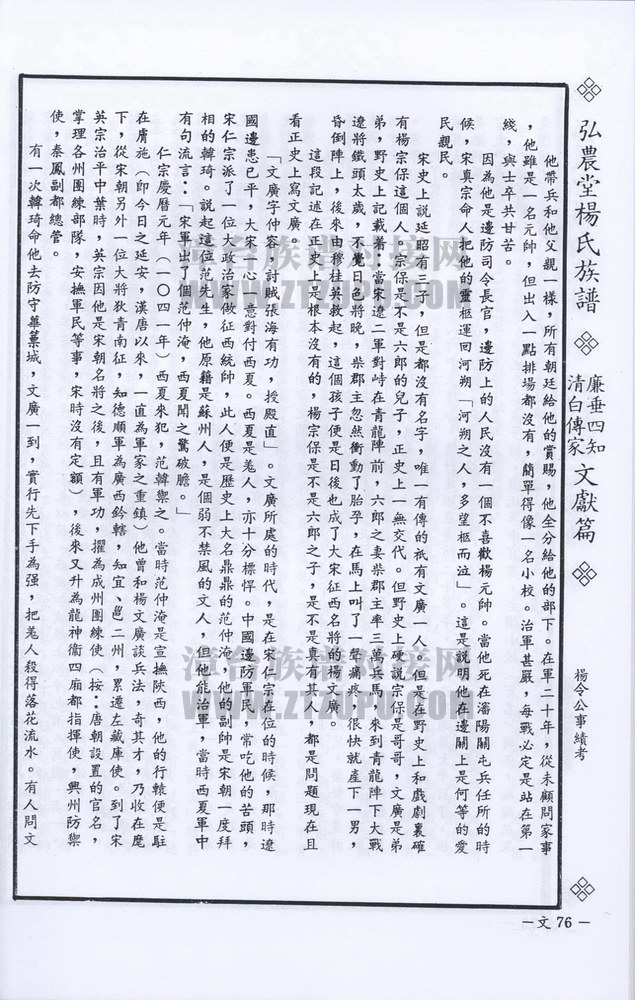 弘農堂楊氏族譜
廉垂四知
清白傳家
文獻篇
楊令公事績考
他帶兵和他父親一樣，所有朝廷給他的賞賜，他全分給他的部下。在軍二十年，從未顧問家事
，他雖是一名元帥，但出入一點排場都沒有，簡單得像一名小校。治軍甚嚴，每戰必定是站在第一
綫，與士卒共甘苦。
因為他是邊防司令長官，邊防上的人民沒有一個不喜歡楊元帥。當他死在瀋陽關屯兵任所的時
候，宋真宗命人把他的靈柩運回河朔「河朔之人，多望柩而泣」。這是說明他在邊關上是何等的愛
民親民。
宋史上說延昭有三子，但是都沒有名字，唯一有傳的祇有文廣一人。但是在野史上和戲劇裏確
有楊宗保這個人。宗保是不是六郎的兒子，正史上一無交代。但野史上硬說宗保是哥哥，文廣是弟
弟，野史上記載着：當宋遼二軍對峙在青龍陣前，六郎之妻柴郡主率三萬兵馬，來到青龍陣下大戰
遼將鐵頭太歲，不覺日色將晚，柴郡主忽然衝動了胎孕，在馬上叫了一聲痛疼，很快就產下一男，
昏倒陣上，後來由穆桂英救起，這個孩子便是日後也成了大宋征西名將的楊文廣。
這段記述在正史上是根本沒有的，楊宗保是不是六郎之子，是不是真有其人，都是問題現在且
看正史上寫文廣。
「文廣字仲容，討賊張海有功，授殿直」。文廣所處的時代，是在宋仁宗在位的時候，那時遼
國邊患已平，大宋一心一意對付西夏。西夏是羌人，亦十分標悍。中國邊防軍民，常吃他的苦頭，
宋仁宗派了一位大政治家做征西統帥，此人便是歷史上大名鼎鼎的范仲淹。他的副帥是宋朝一度拜
相的韓琦。說起這位范先生，他原籍是蘇州人，是個弱不禁風的文人，但他能治軍，當時西夏軍中
有句流言：「宋軍出了個范仲淹，西夏聞之驚破膽。」
仁宗慶曆元年（一〇四一年）西夏來犯，范韓禦之。當時范仲淹是宣撫陝西，他的行轅便是駐
在膚施（即今日之延安，漢唐以來，一直為軍家之重鎮）他曾和楊文廣談兵法，奇其才，乃收在麾
下，從宋朝另外一位大將狄青南征，知德順軍為廣西鈐轄，知宜、邕二州，累遷左藏庫使。到了宋
英宗治平中葉時，英宗因他是宋朝名將之後，且有軍功，擢為成州團練使（按：唐朝設置的官名，
掌理各州團練部隊，安撫軍民等事，宋時沒有定額），後來又升為龍神衛四廂都指揮使，興州防禦
使，秦鳳副都總管。
有一次韓琦命他去防守篳篥城，文廣一到，實行先下手為强，把羌人殺得落花流水。有人問文
—文 76—
漳台族谱对接网
WWW.ZTZUPU.COM
漳台族谱对接网
WWW.ZTZUPU.COM